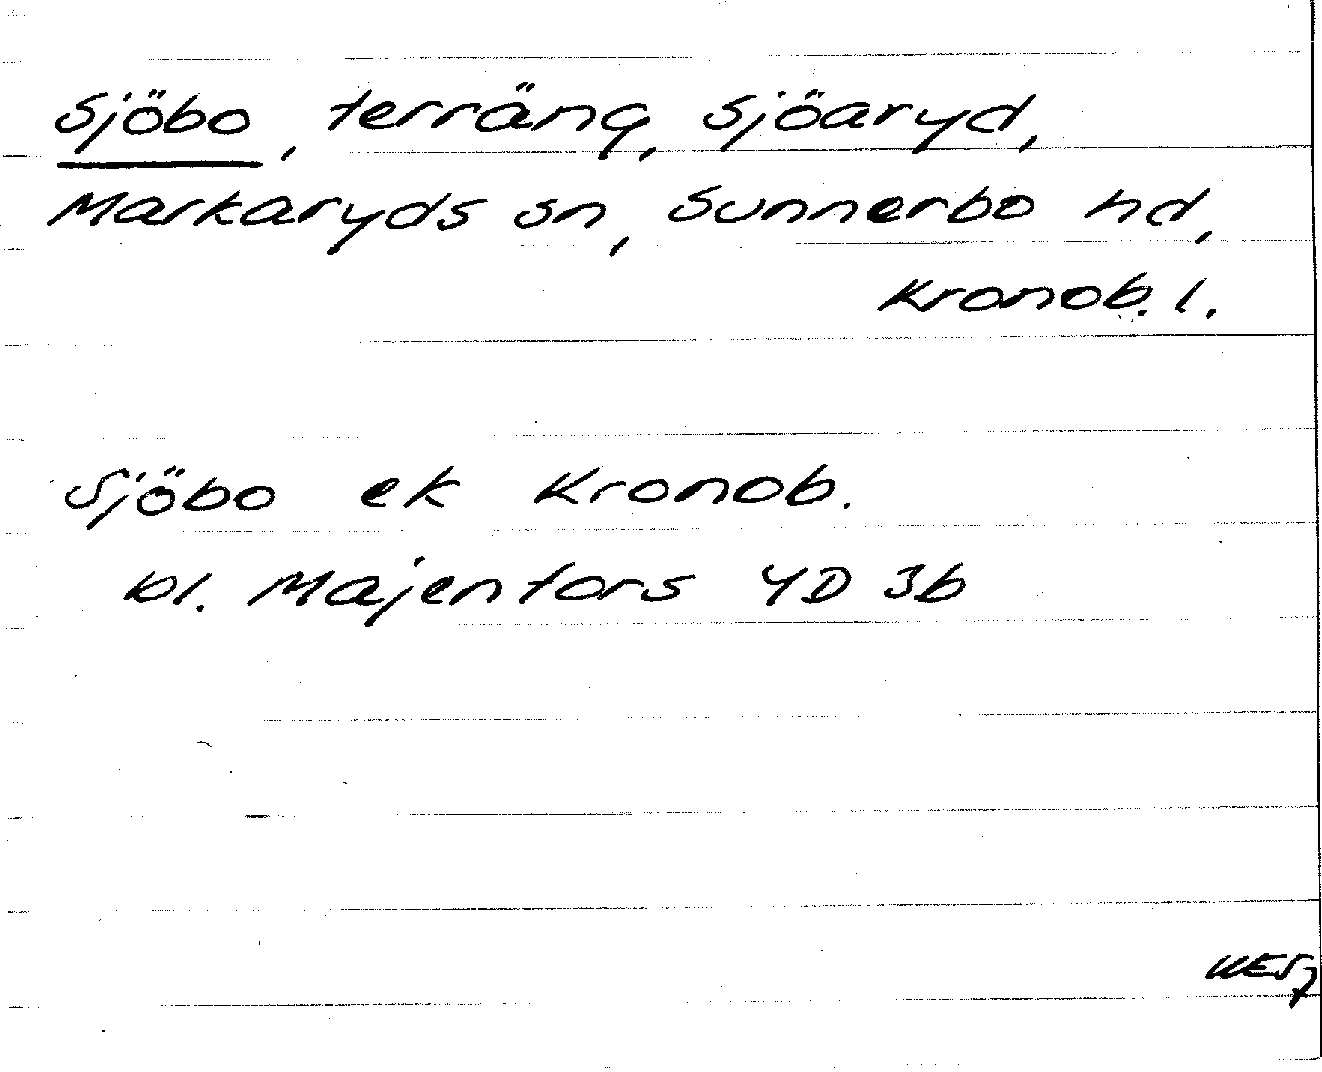 Sjöbo, terräng, Sjöaryd,
Markaryds sn, Sunnerbo hd,
Kronob. l.
Sjöbo ek Kronob.
bl. Majenfors 4D 3b